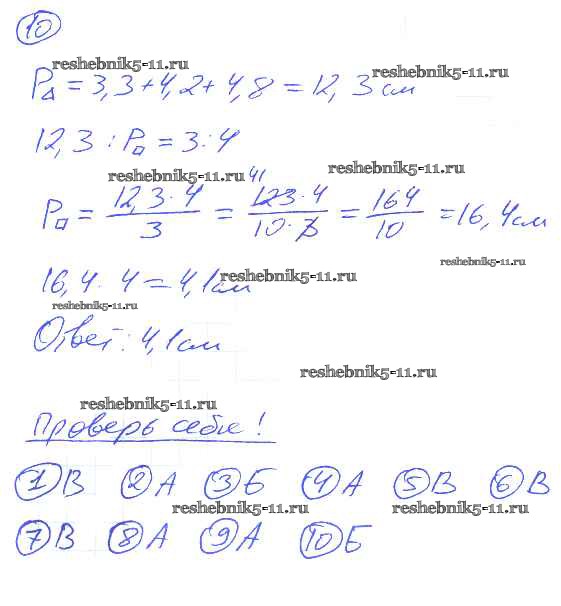 10
reshebnik5-11.ru
reshebnik5-11.ru
P△ = 3,3+4,2+4,8 = 12,3см
12,3 : P□ = 3:4
reshebnik5-11.ru
reshebnik5-11.ru
P□ = 12,3·4/3 = 123·4/10·3 = 164/10 = 16,4см
41
reshebnik5-11.ru
16,4 · 4 = 4,1см
reshebnik5-11.ru
reshebnik5-11.ru
Ответ: 4,1см
reshebnik5-11.ru
reshebnik5-11.ru
Проверь себя!
1 В 2 А 3 Б 4 А 5 В 6 В
reshebnik5-11.ru
reshebnik5-11.ru
7 В 8 А 9 А 10 Б